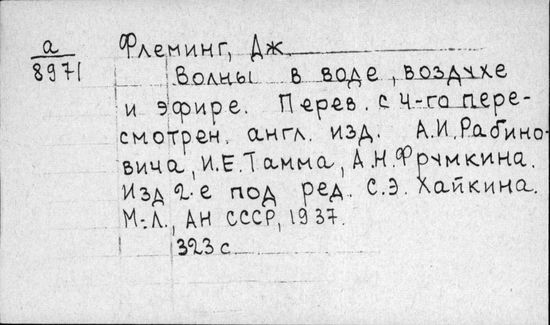 а
8971
Флеминг, Дж.
Волны в воде, воздухе
и эфире. Перев. с 4-го пере-
смотрен. англ. изд. А.И.Рабино-
вича, И.Е.Тамма, А.Н.Фрумкина.
Изд 2-е под ред. С.Э. Хайкина.
М.-Л., АН СССР, 1937.
323 с